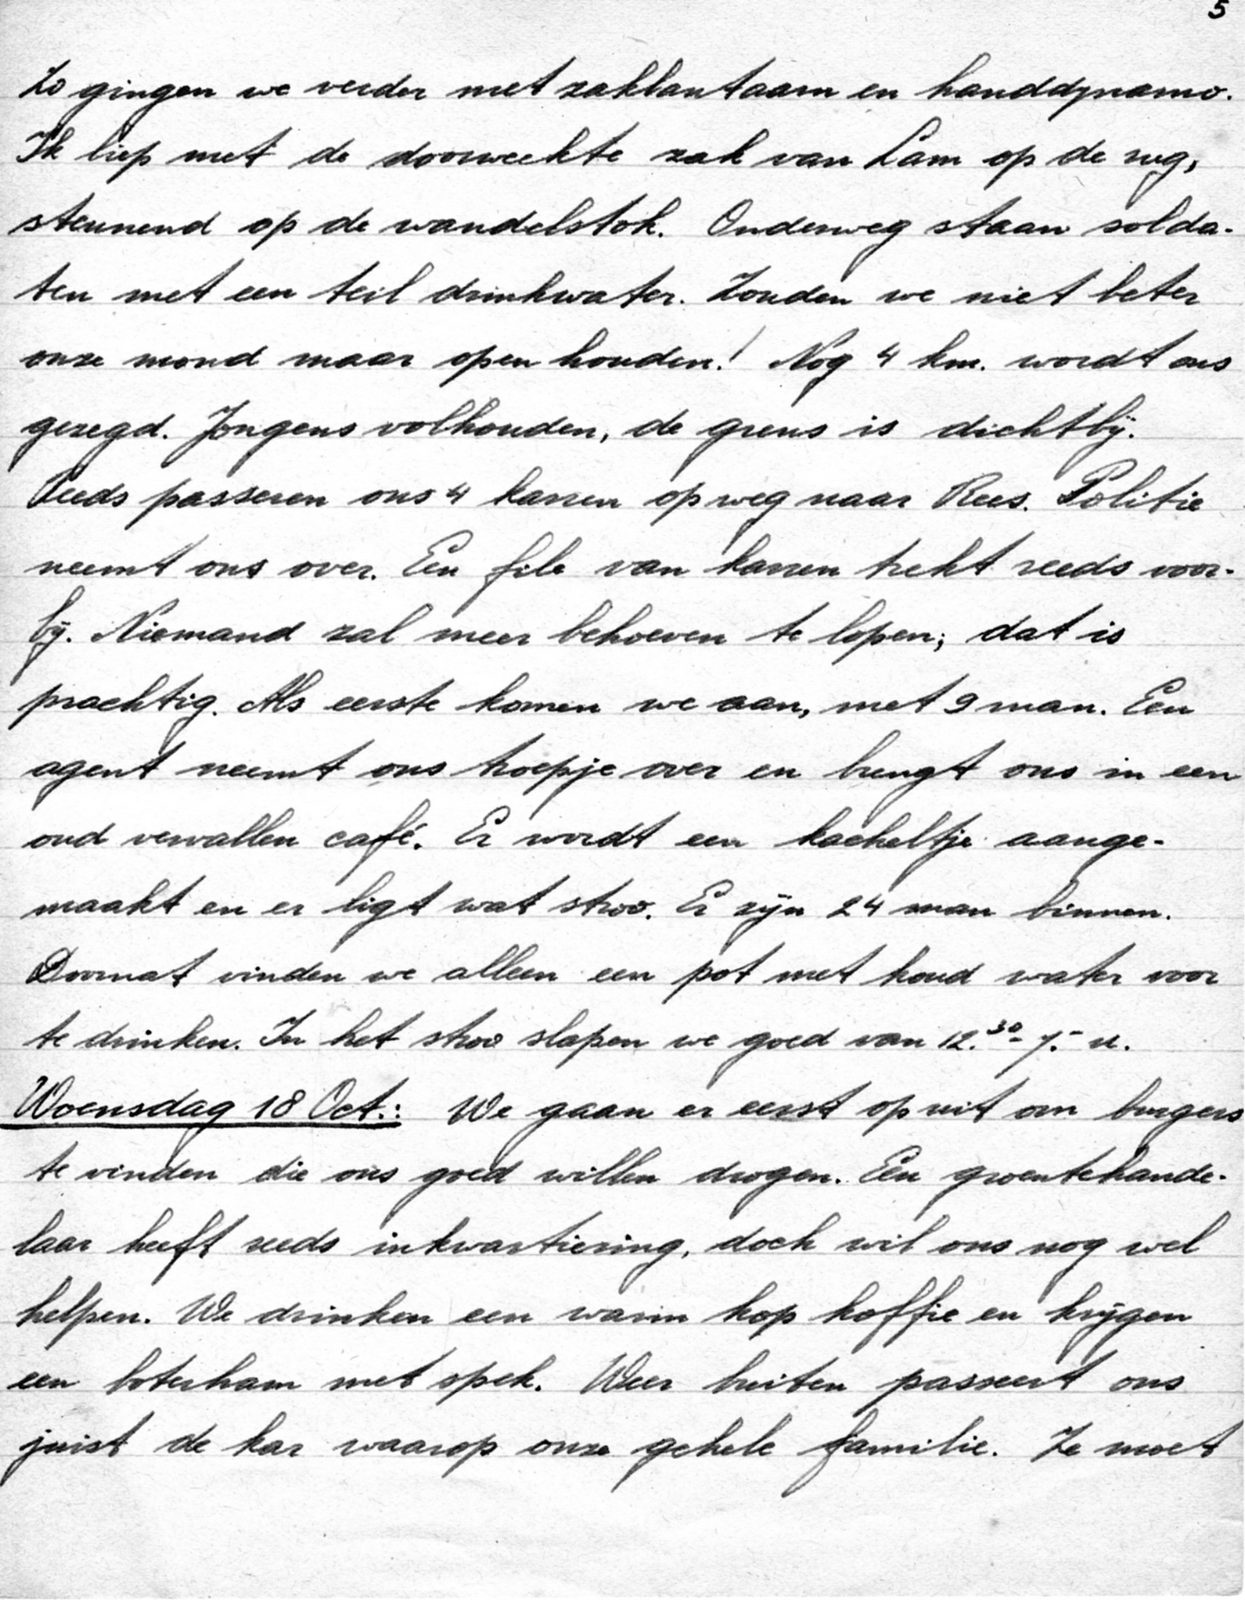 5
Zo gingen we verder met zaklantaarn en handdynamo.
Ik liep met de doorweekte zak van Cam op de rug,
steunend op de wandelstok. Onderweg staan solda-
ten met een teil drinkwater. Zouden we niet beter
onze mond maar open houden! Nog 4 km. wordt ons
gezegd. Jongens volhouden, de grens is dichtbij.
Reeds passeren ons 4 karren op weg naar Rees. Politie
neemt ons over. Een file van karren trekt reeds voor-
bij. Niemand zal meer behoeven te lopen; dat is
prachtig. Als eerste komen we aan, met 9 man. Een
agent neemt ons troepje over en brengt ons in een
oud vervallen café. Er wordt een kacheltje aange-
maakt en er ligt wat stroo. Er zijn 24 man binnen.
Doornat vinden we alleen een pot met koud water voor
te drinken. In het stroo slapen we goed van 12.30 - 7.- u.
Woensdag 18 Oct.: We gaan er eerst op uit om burgers
te vinden die ons goed willen drogen. Een groentehande-
laar heeft reeds inkwartiering, doch wil ons nog wel
helpen. We drinken een warm kop koffie en krijgen
een boterham met spek. Weer buiten passeert ons
juist de kar waarop onze gehele familie. Ze moet